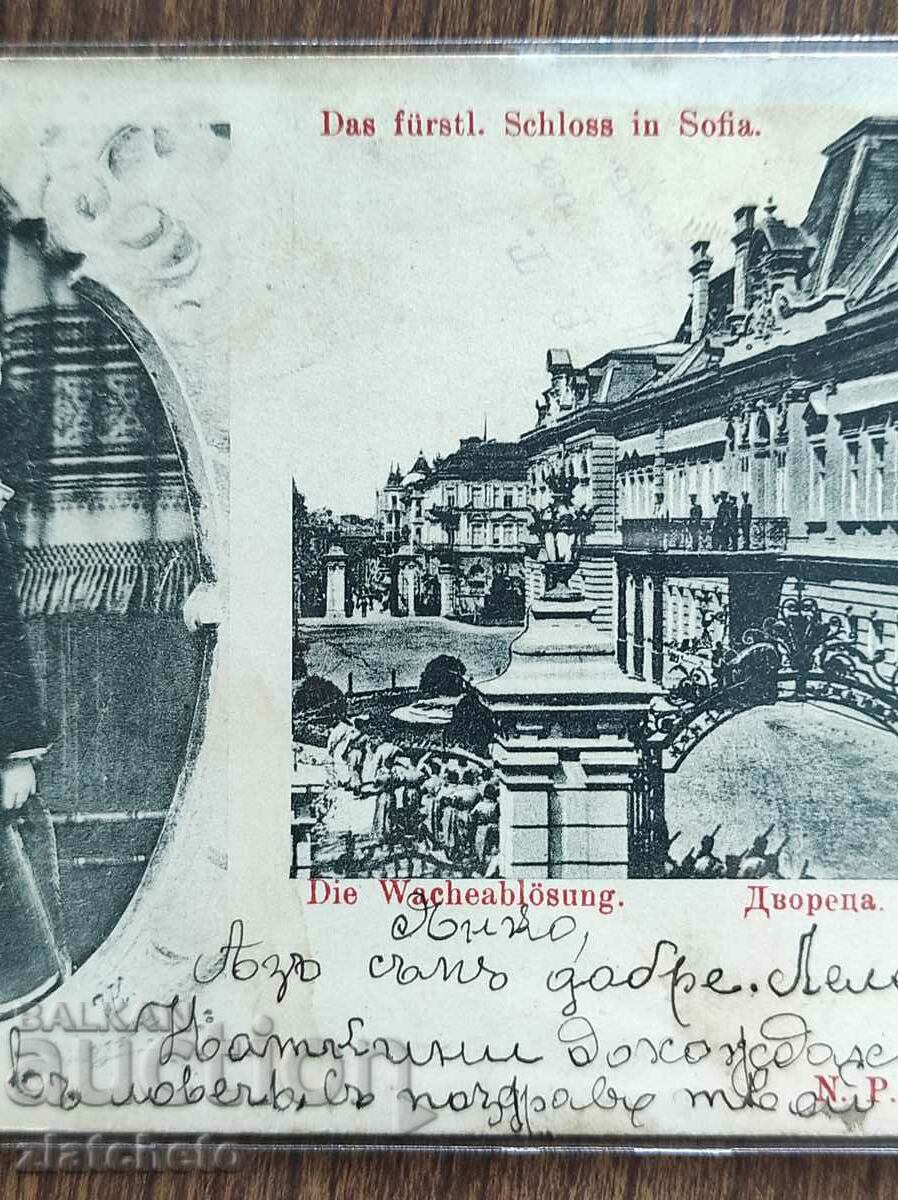 Das fürstl. Schloss in Sofia.
Die Wacheablösung. Двореца.
Янко,
Азъ съмъ добре. Леле
дохождах
въ Ловечъ, съ поздравъ твой
N. P.
BALKAN
auction
zlatcheto